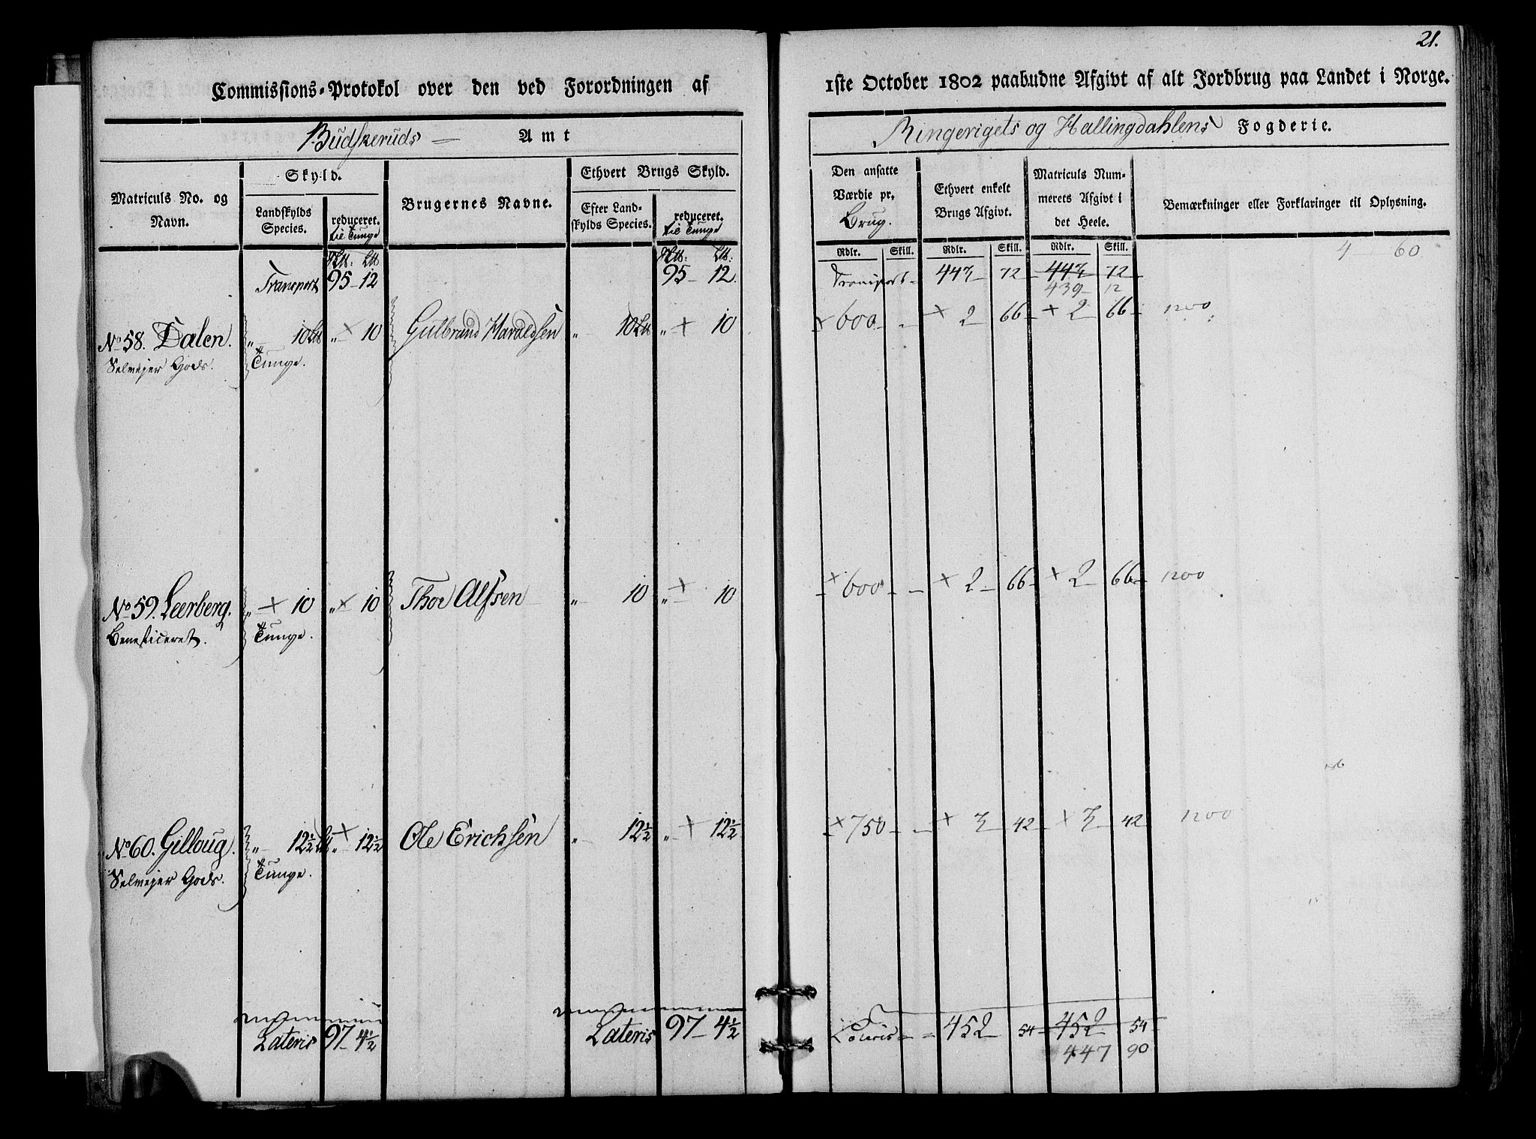 21.
Commissions-Protokol over den ved Forordningen af 1ste October 1802 paabudne Afgivt af alt Jordbrug paa Landet i Norge.
Budskeruds Amt
Ringerigets og Hallingdahlens Fogderie.
Matriculs No. og Navn.
Skyld.
Landskylds Species.
reduceret. til Tunge
Brugernes Navne.
Ethvert Brugs Skyld.
Efter Landskylds Species.
reduceret. til Tunge
Den ansatte Værdie pr. Brug.
Ethvert enkelt Brugs Afgivt.
Matriculs Nummerets Afgivt i det Heele.
Bemærkninger eller Forklaringer til Oplysning.
Rdlr. Skill. Rdlr. Skill. Rdlr. Skill.
4 60
Transport 95 - 12 95 - 12. Transport 443 - 72 - 443 - 72
439 - 12
No 58. Dalen. „ 10 „ × 10 Gulbrand Haraldsen „ 10 „ × 10 × 600 - × 2 66 × 2 66 1200
Selmejer Gods. Tunge.
No 59. Leerberg. „ × 10 „ × 10 Thor Alfsen „ 10 „ × 10 × 600 - × 2 - 66 × 2 - 66 1200
Beneficeret. Tunge.
No 60. Gilloug. „ 12½ „ × 12½ Ole Erichsen „ 12½ „ × 12½ × 750 - × 3 42 × 3 42 1200
Selmejer Gods. Tunge.
Lateris 97 - 4½ Lateris 97 - 4½ Lateris - 452 54 452 54
447 90